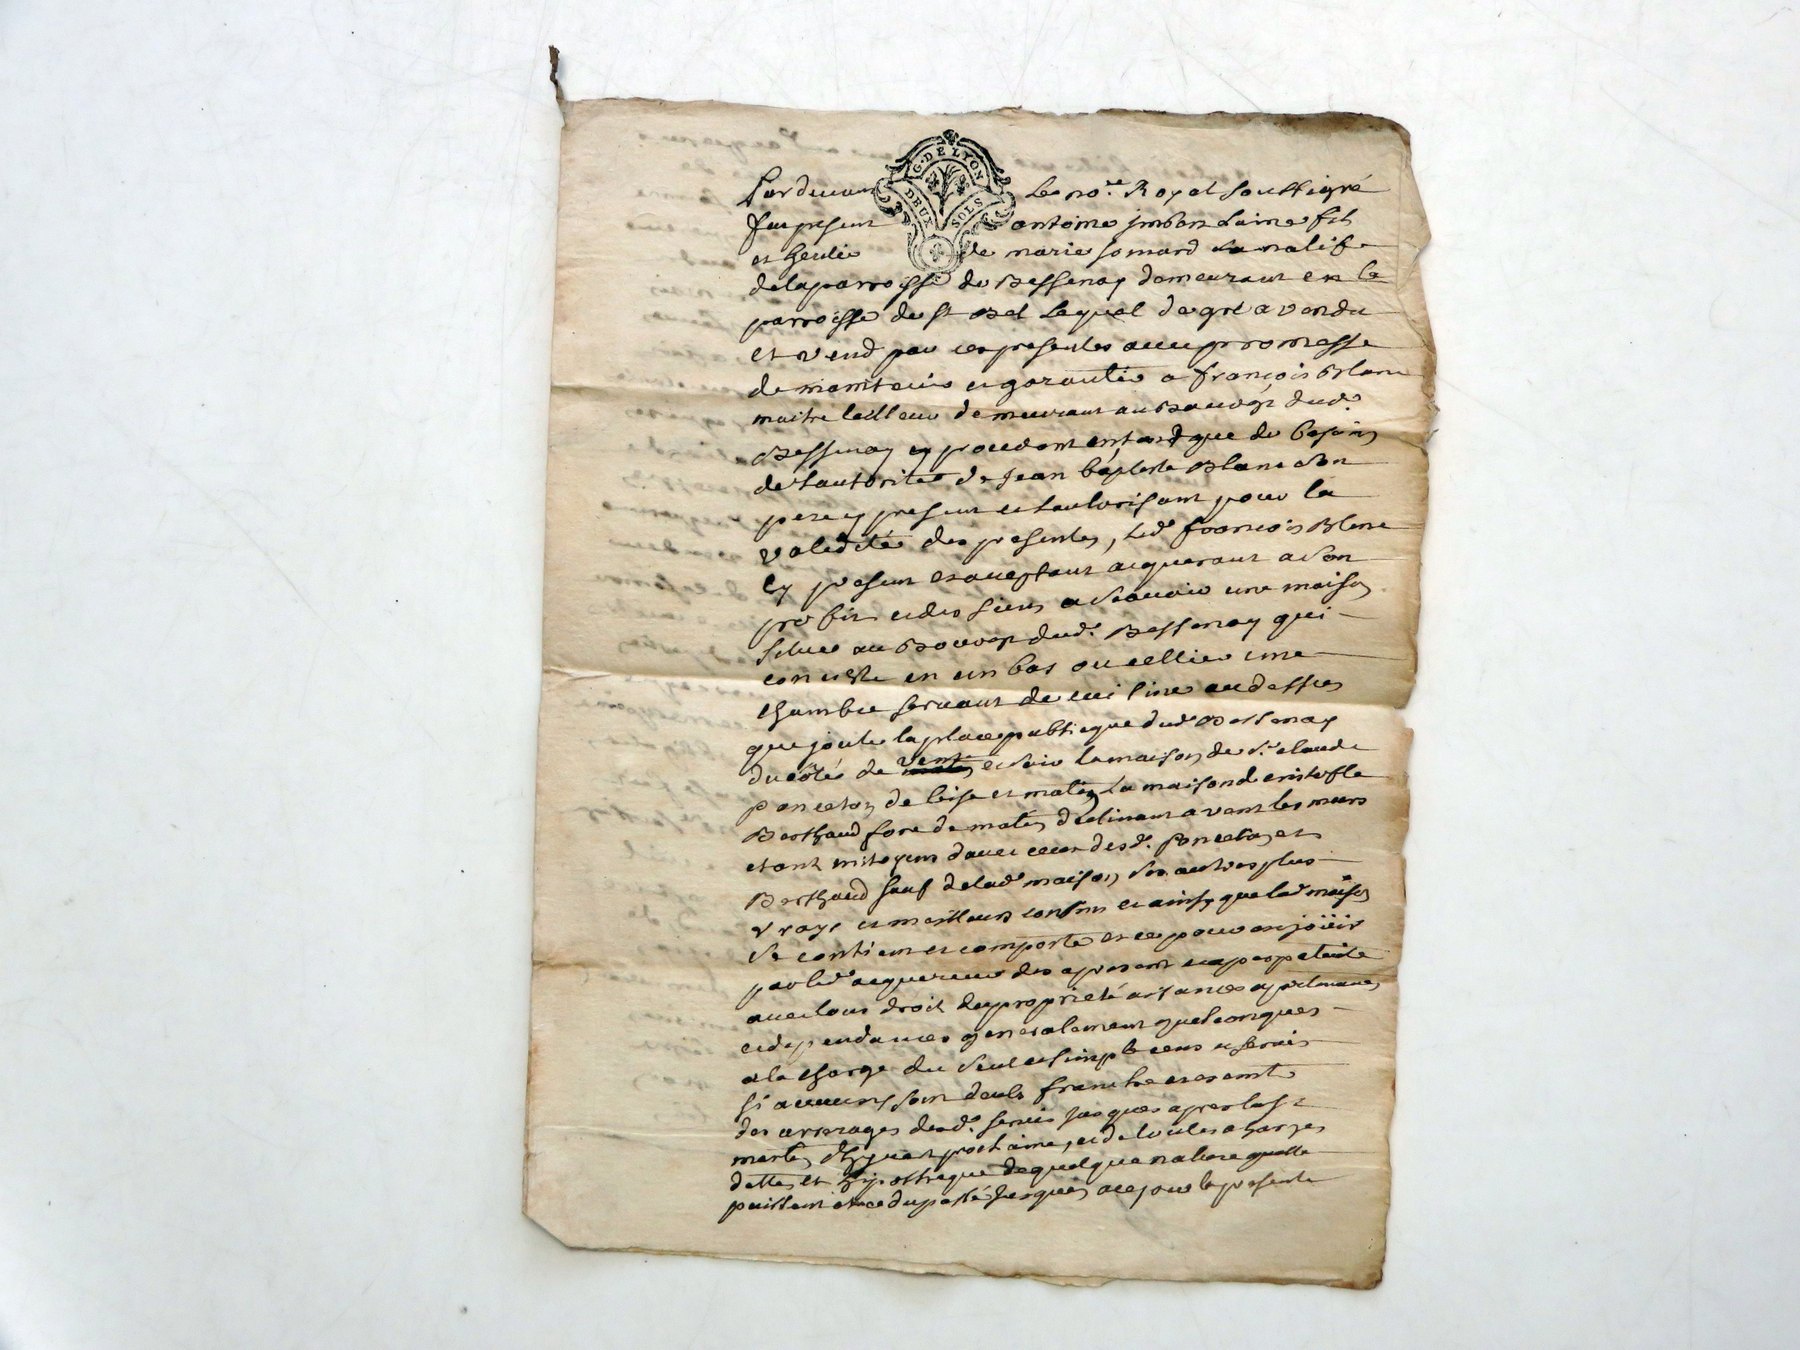 G. DE LYON
DEUX SOLS
Pardevant Le no.re Royal soussigné
fut present antoine imbert Laine fils
et heritie de marie jomard La natif
de la parroisse de Bessenay demeurant en la
parroisse de st Bel Lequel de gré a vendu
et vend par ces presentes avec promesse
de maintenir et garantir a françois Blanc
maitre tailleur demeurant au Bourg dud.
Bessenay cy procedant entant que de besoin
de l'autorité de Jean baptiste Blanc son
pere cy present et l'autorisant pour la
validité des presentes, led. françois Blanc
cy present et acceptant acquerant a son
profit et des siens a Scavoir une maison
située au Bourg dud. Bessenay qui
consiste en un bas ou cellier une
chambre servant de cuisine au dessus
que joute la place publicque dud. Bessenay
du côté de vent et soir la maison de s.r claude
ponceton de bise et matin La maison de cristofle
Berthaud fore de matin declinant a vent les murs
etant mitoyens d'avec ceux desd. Ponceton et
Berthaud sauf de lad. maison ses autres plus
vrays et meilleurs confins et ainsy que lad. maison
se contient et comporte et ce pour en joüir
par led. acquereur des apresent et a perpetuité
avec tous droit de proprieté aisances apartenances
et dependances generalement quelconques
a la charge du seul et simple cens et servis
si aucuns sont deubs franche et exempte
des arrerages desd. servis jusques a pres la st
martin d'hyver prochaine, et de toutes charges
dettes et hypotheque de quelque nature quelle
puissent etre du passé jusques a ce jour la presente